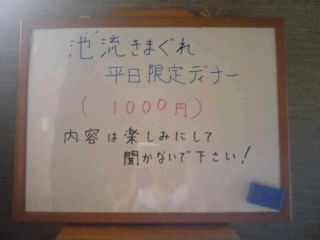 池流きまぐれ
平日限定ディナー
(1000円)
内容は楽しみにして
聞かないで下さい!